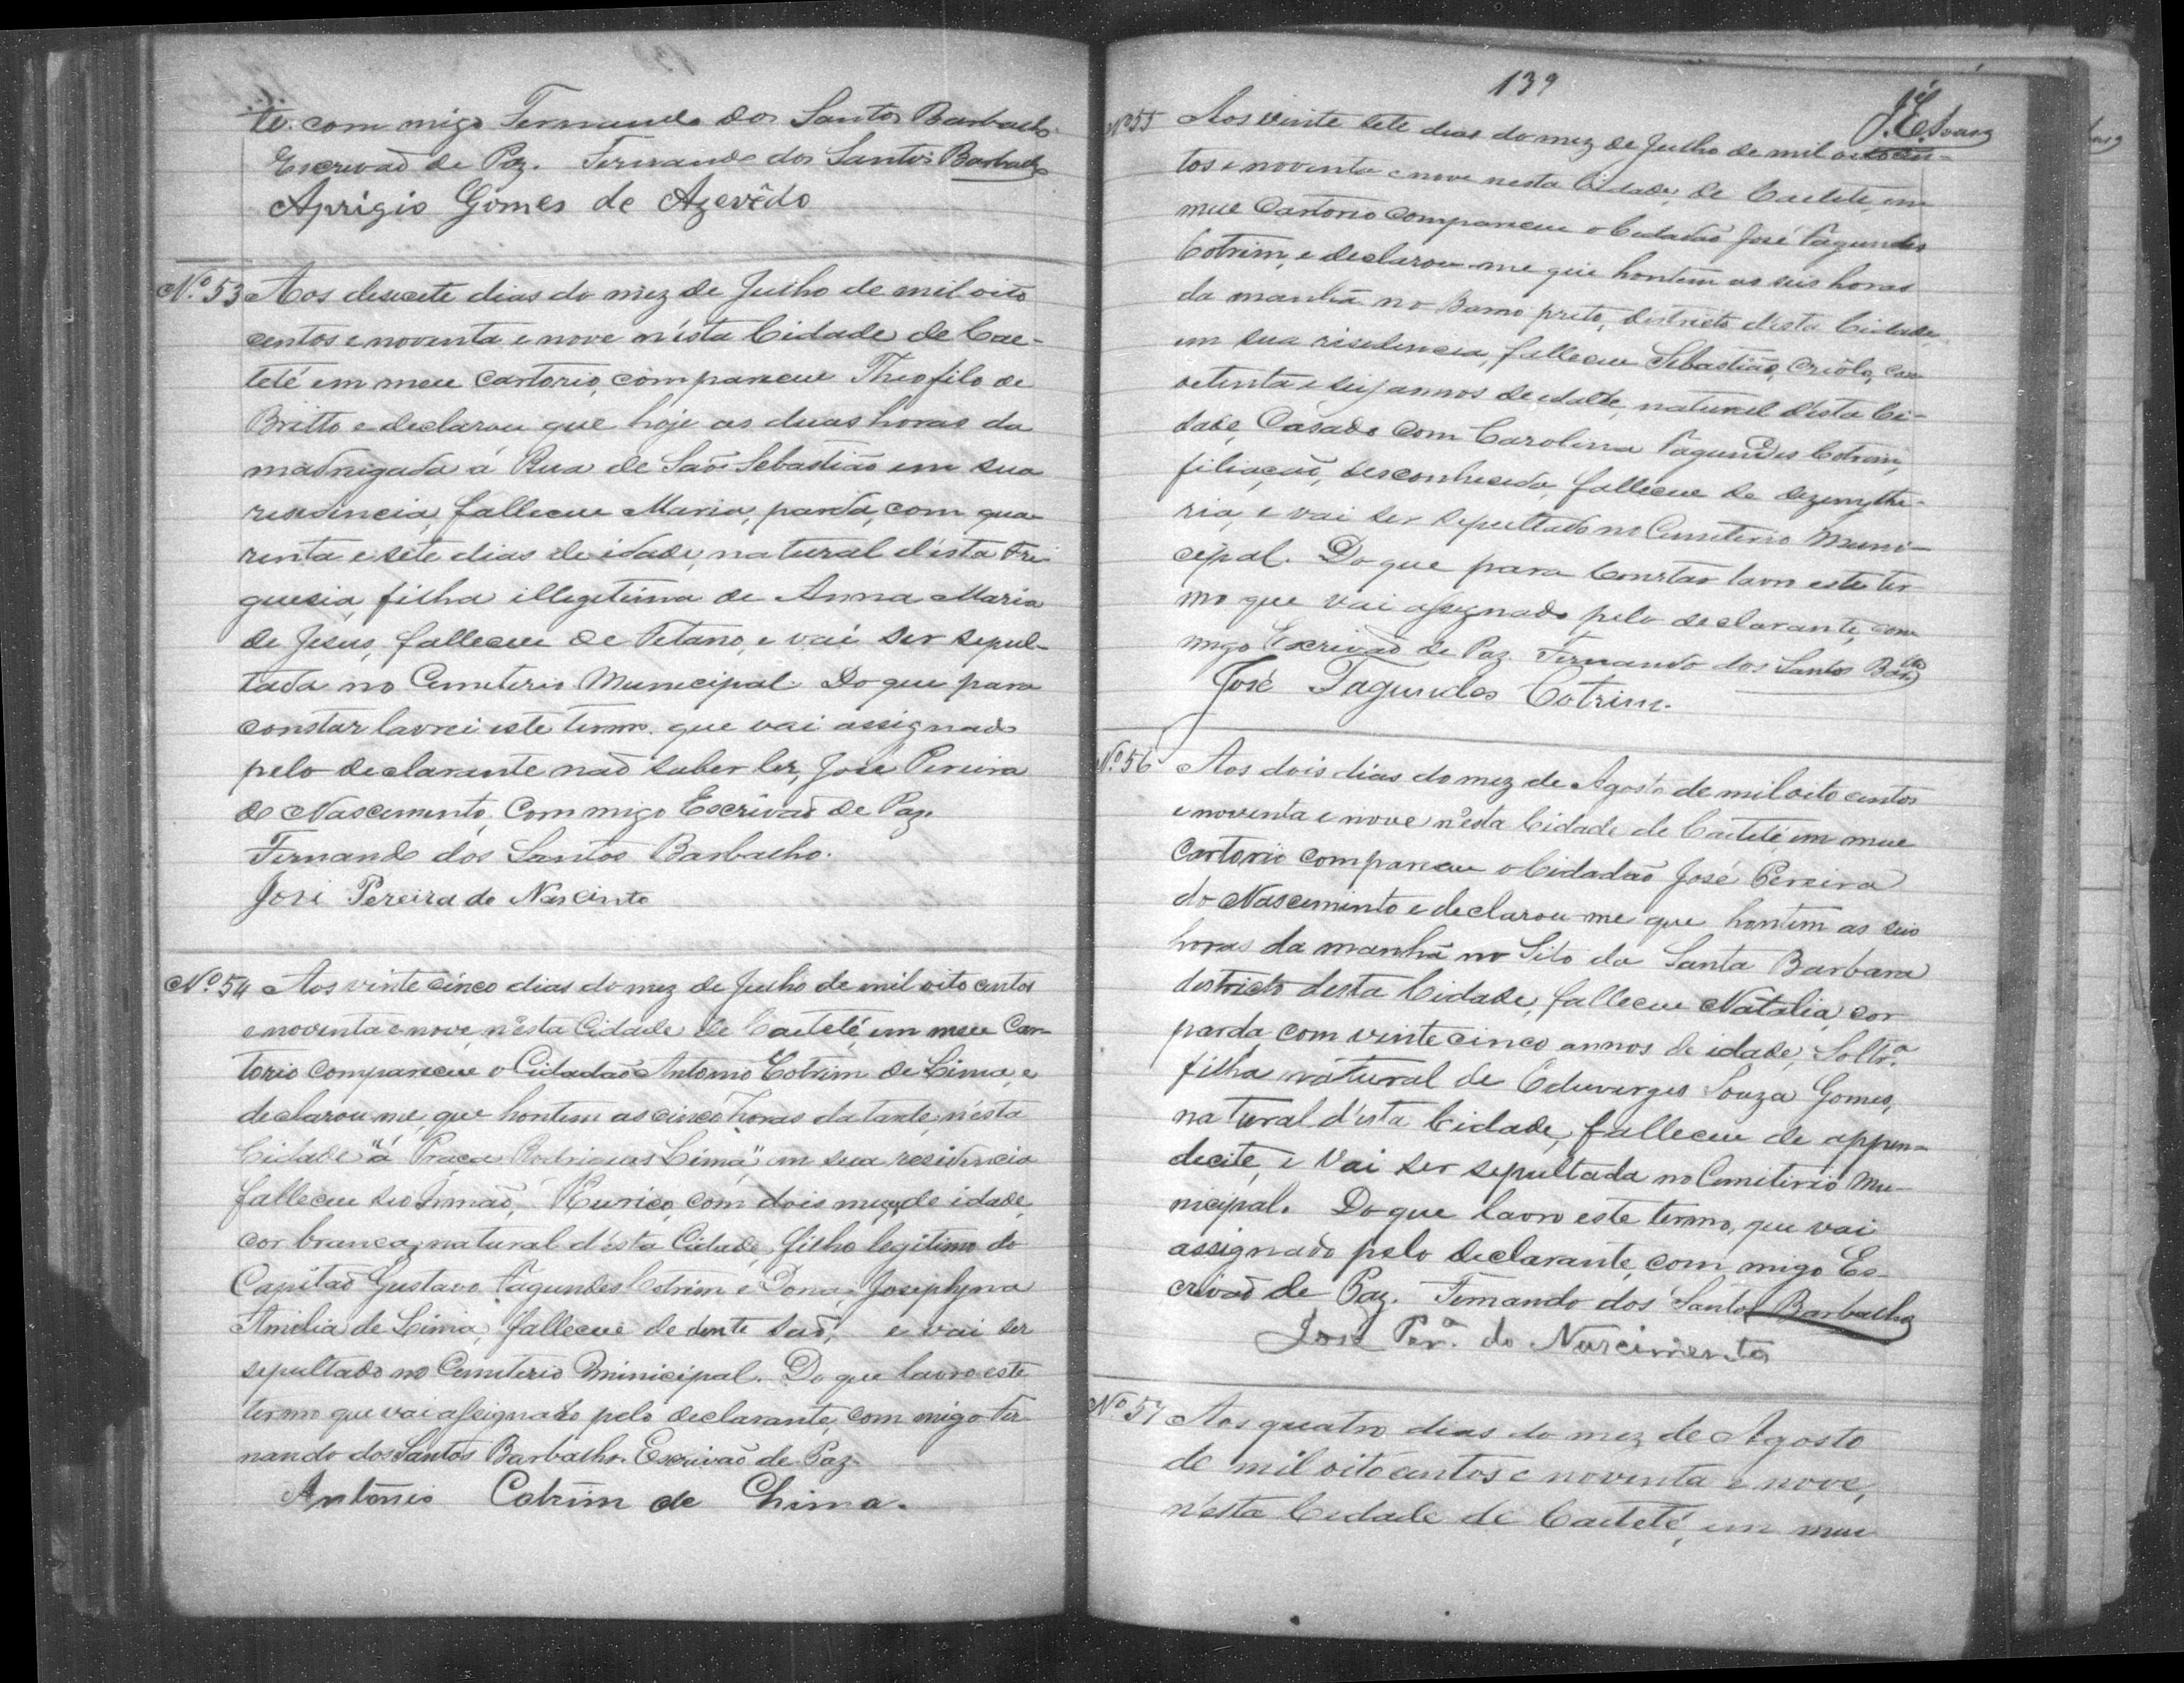 te. com migo Fernando dos Santos Barbacho
Escrivaõ de Paz. Fernando dos Santos Barbacho
Aprigio Gomes de Azevêdo
Nº 53 Aos desecete dias do mez de Julho de mil oito
centos e noventa e nove n'ésta Cidade de Cae-
teté em meu Cartorio, compareceu Theofilo de
Britto e declarou que hoje as duas horas da
madrugada á Rua de Saõ Sebastiaõ em sua
residencia, falleceu Maria, parda, com qua
renta e séte dias de idade, natural d'ésta Fre
guesia, filha illegitima de Anna Maria
de Jesus, falleceu de Tetano, e vai ser sepul-
tada no Cemeterio Municipal. Do que para
constar lavrei este termo. que vai assignado
pelo declarante naõ saber ler, José Pereira
do Nascemento, Com migo Escrivaõ de Paz.
Fernando dos Santos Barbacho.
Josi Pereira do Nascinto
Nº 54 Aos vinte cinco dias do mez de Julho de mil oito centos
e noventa e nove, n'ésta Cidade de Caeteté, em meu Car-
torio Compareceu o Cidadaõ Antonio Cotrim de Lima, e
declarou-me, que hontem as cinco horas da tarde, n'ésta
Cidade "á Praça Rodrigues Lima" em sua residencia
falleceu seo Irmaõ, Eurico, com dois mezes de idade,
cor branca, natural d'ésta Cidade, filho legitimo do
Capitaõ Gustavo Fagundes Cotrim e Dona Josephyna
Amelia de Lima, falleceu de dentesaõ, e vai ser
sepultado no Cemeterio Municipal. Do que lavro este
termo que vai assignado pelo declarante, com migo Fer
nando dos Santos Barbacho. Escrivaõ de Paz.
Antonio Cotrim de Lhima.
139
Nº 55 Aos vinte sete dias do mez de Julho de mil oitocen-
tos e noventa e nove nesta Cidade, de Caeteté, em
meu Cartorio compareceu o Cidadaõ José Fagundes
Cotrim, e declarou-me que hontem as seis horas
da manhã no Barro preto, districto désta Cidade
em sua risedencia, falleceu Sebastiaõ, Criôlo, com
setenta e seis annos de edade, natural désta Ci-
dade, Casado Com Carolina Fagundes Cotrim,
filiaçaõ, desconhecida, falleceu de dezemythe-
ria, e vai ser sepultado no Cemeterio Muni-
cipal. Do que para Constar lavro este ter
mo que vai assignado pelo declarante, com
migo Escrivaõ de Paz. Fernando dos Santos Barbº
José Fagundes Cotrim.
Nº 56 Aos dois dias do mez de Agosto de mil oito centos
e noventa e nove n'ésta Cidade de Caeteté em meu
Cartorio compareceu o Cidadaõ José Pereira
do Nascemento e declarou-me que hontem as seis
horas da manhã no Sito da Santa Barbara
districto desta Cidade, falleceu Natalia, cor
parda com vinte cinco annos de idade, Soltrª
filha natural de Eduverges Souza Gomes,
natural d'ésta Cidade, falleceu de appen-
decite, e vai ser sepultada no Cemiterio Mu-
nicipal. Do que lavro este termo, que vai
assignado pelo declarante, com migo Es-
crivaõ de Paz. Fernando dos Santos Barbacho
José Perª do Nascimento
Nº 57 Aos quatro dias do mez de Agosto
de mil oitocentos e noventa e nove,
n'ésta Cidade de Caeteté, em meu